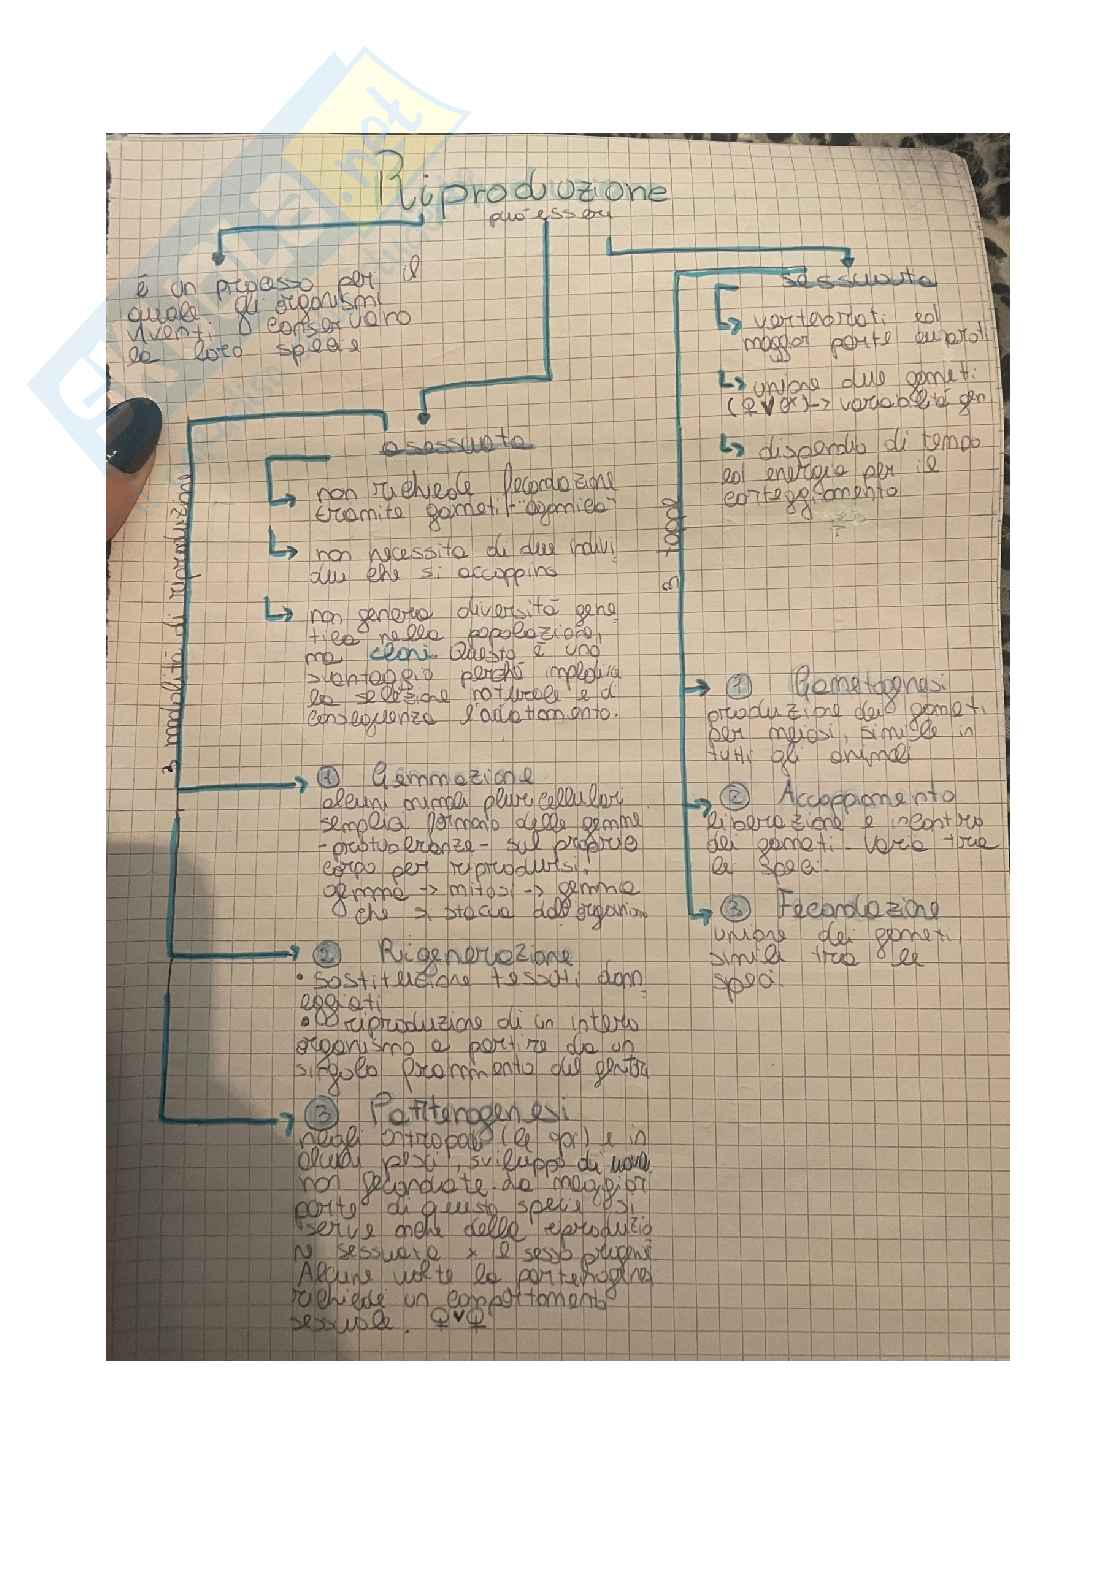 Riproduzione
può essere
è un processo per il
quale gli organismi
viventi conservano
la loro specie
sessuata
vertebrati ed
maggior parte
unione due gameti
(♀ v ♂) -> variabilità gen
dispendio di tempo
ed energia per il
corteggiamento
asessuata
non richiede fecondazione
tramite gameti - "agamica"
non necessita di due indivi
dui che si accoppino
non genera diversità gene
tica nella popolazione,
ma cloni. Questo è uno
svantaggio perché impedisce
la selezione naturale e di
conseguenza l'adattamento.
3 modalità di riproduzione
3 tappe
1 Gametogenesi
produzione dei gameti
per meiosi, simile in
tutti gli animali
2 Accoppiamento
liberazione e incontro
dei gameti. Varia tra
le speci.
3 Fecondazione
unione dei gameti
simili tra le
speci.
1 Gemmazione
alcuni animali pluricellulari
semplici formano delle gemme
- protuberanze - sul proprio
corpo per riprodursi.
gemma -> mitosi -> gemma
che si stacca dall'organism
2 Rigenerazione
• sostituzione tessuti dann
eggiati
• riproduzione di un intero
organismo a partire da un
singolo frammento del
3 Partenogenesi
negli artropodi (le api) e in
alcuni pesci, sviluppo di uova
non fecondate. La maggior
parte di queste specie si
serve anche della riproduzio
ne sessuata x il sesso
Alcune volte la partenogenesi
richiede un comportamento
sessuale. ♀ v ♀